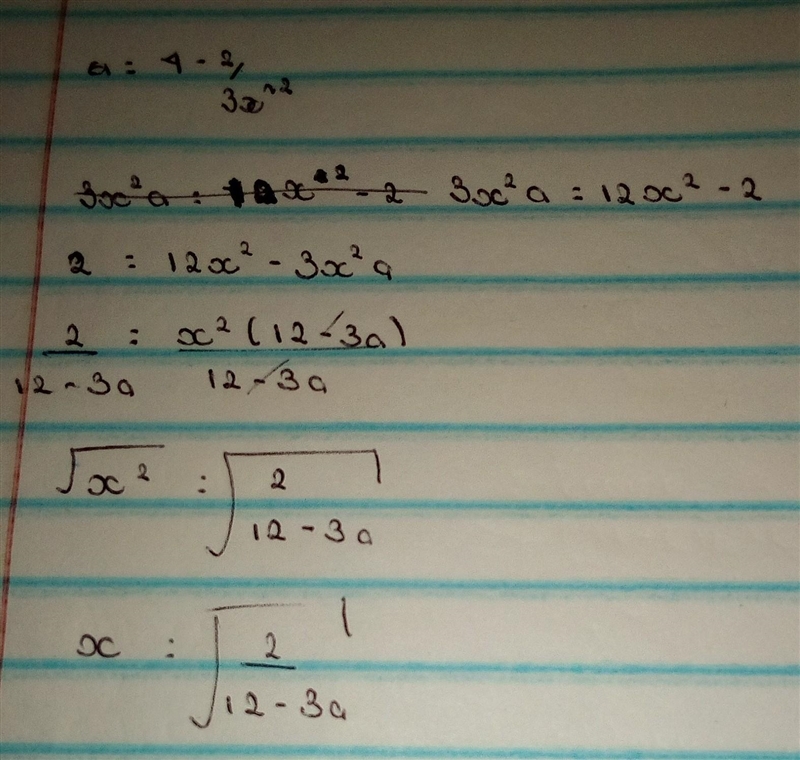 a = 4 - 2/
3x^2
3x²a = 12x² - 2 3x²a = 12x² - 2
2 = 12x² - 3x²a
2 = x² (12 - 3a)
12 - 3a 12 - 3a
√x² = √2
12 - 3a
x = √2
12 - 3a